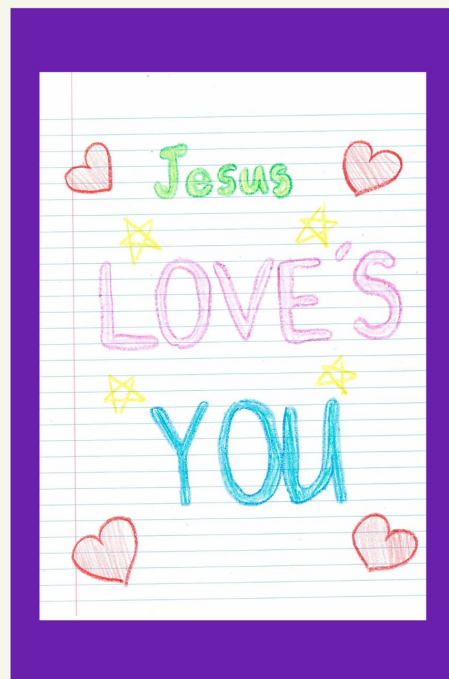 Jesus
LOVE'S
YOU